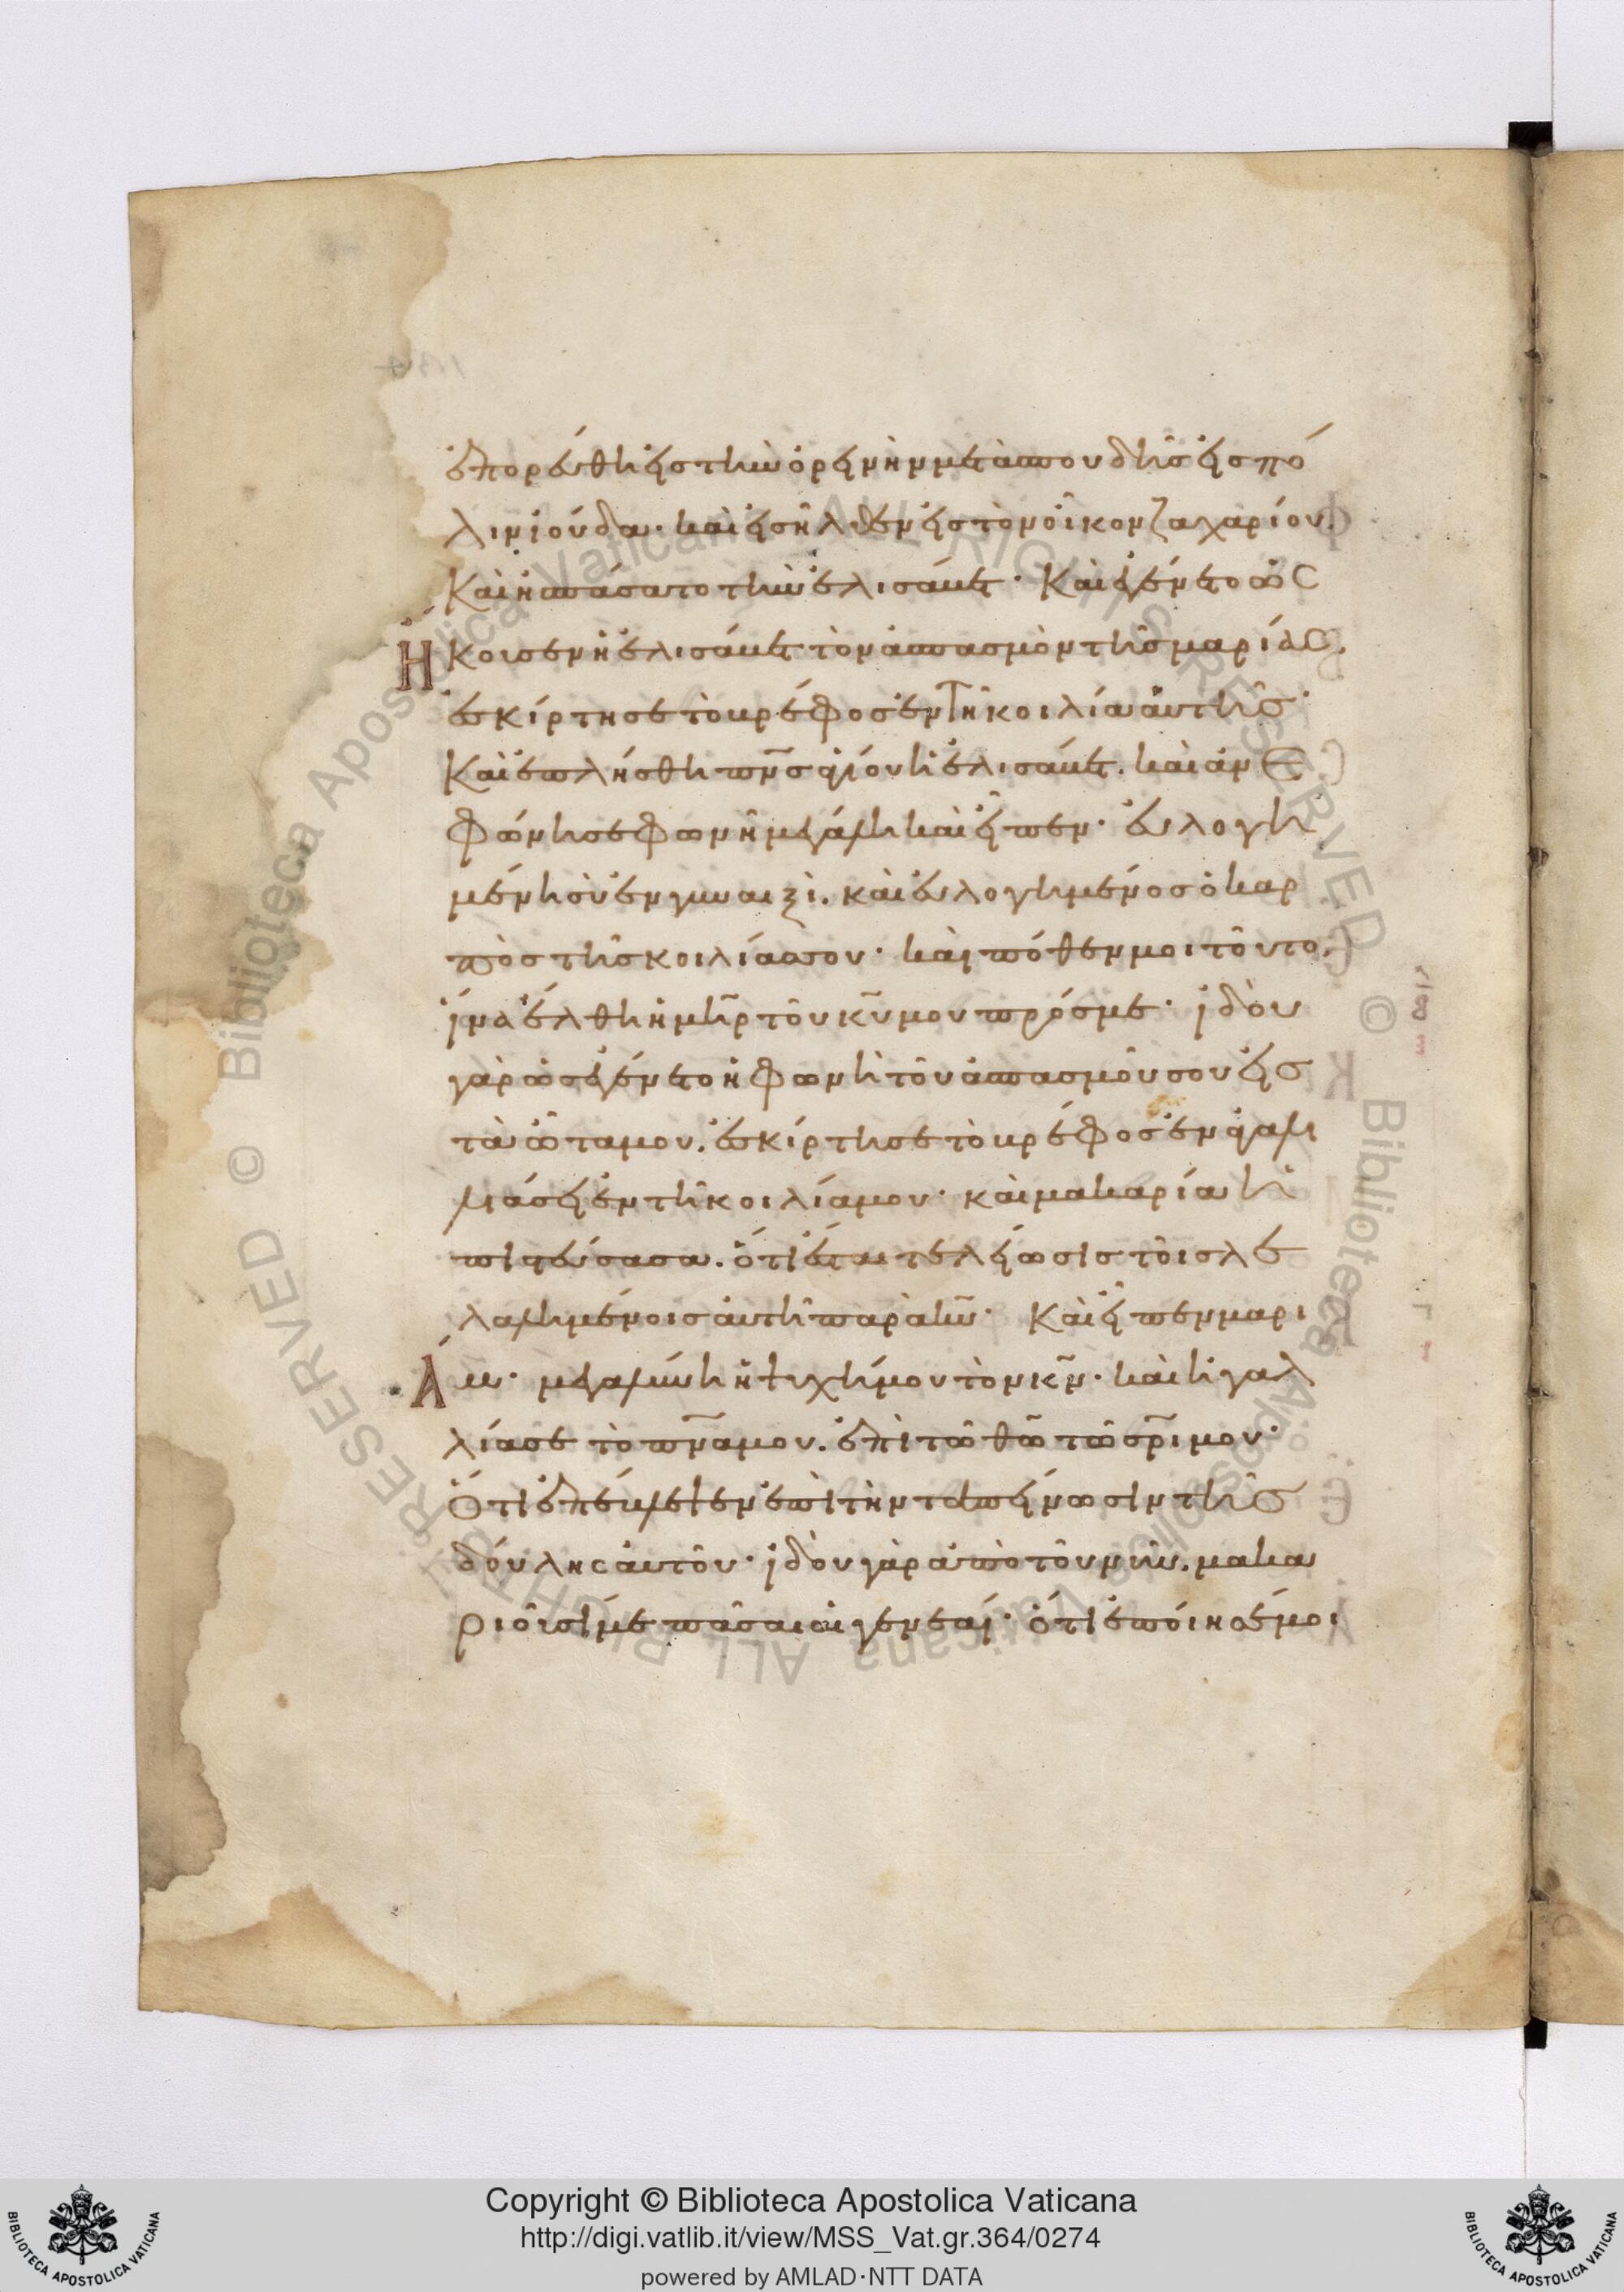 ἐπορεύθη εἰς τὴν ὀρεινὴν μετὰ σπουδῆς εἰς πό
λιν ἰούδα· καὶ εἰσῆλθεν εἰς τὸν οἶκον ζαχαρίου.
Καὶ ἠσπάσατο τὴν ἐλισάβετ· Καὶ ἐγένετο ὡς
Ἤκουσεν ἡ ἐλισάβετ τὸν ἀσπασμὸν τῆς μαρίας.
ἐσκίρτησε τὸ βρέφος ἐν τῆ κοιλία αὐτῆς·
Καὶ ἐπλήσθη πν̅ς ἁγίου ἡ ἐλισάβετ. καὶ ἀνε
φώνησε φωνῆ μεγάλη καὶ εἶπεν· εὐλογη
μένη σὺ ἐν γυναιξὶ. καὶ εὐλογημένος ὁ καρ
πὸς τῆς κοιλίας σου· καὶ πόθεν μοι τοῦτο,
ἵνα ἔλθη ἡ μη̅ρ τοῦ κυ̅ μου πρός με· ἰδοὺ
γὰρ ὡς ἐγένετο ἡ φωνὴ τοῦ ἀσπασμοῦ σου εἰς
τὰ ὦτα μου. ἐσκίρτησε τὸ βρέφος ἐν ἀγαλ
λιάσει ἐν τῆ κοιλία μου· καὶ μακαρία ἡ
πιστεύσασα. ὅτι ἔσται τελείωσις τοῖς λε
λαλημένοις αὐτῆ παρὰ κυ̅· Καὶ εἶπεν μαρι
Άμ· μεγαλύνει ἡ ψυχή μου τὸν κν̅· καὶ ἠγαλ
λίασε τὸ πν̅α μου. ἐπὶ τῶ θω̅ τῶ σρ̅ι μου·
Ὅτι ἐπέβλεψεν ἐπὶ τὴν ταπείνωσιν τῆς
δούλης αὐτοῦ· ἰδοὺ γὰρ ἀπὸ τοῦ νῦν. μακα
ριοῦσί με πᾶσαι αἱ γενεαί· ὅτι ἐποίησέ μοι
Copyright © Biblioteca Apostolica Vaticana
http://digi.vatlib.it/view/MSS_Vat.gr.364/0274
powered by AMLAD·NTT DATA
BIBLIOTECA APOSTOLICA VATICANA
BIBLIOTECA APOSTOLICA VATICANA